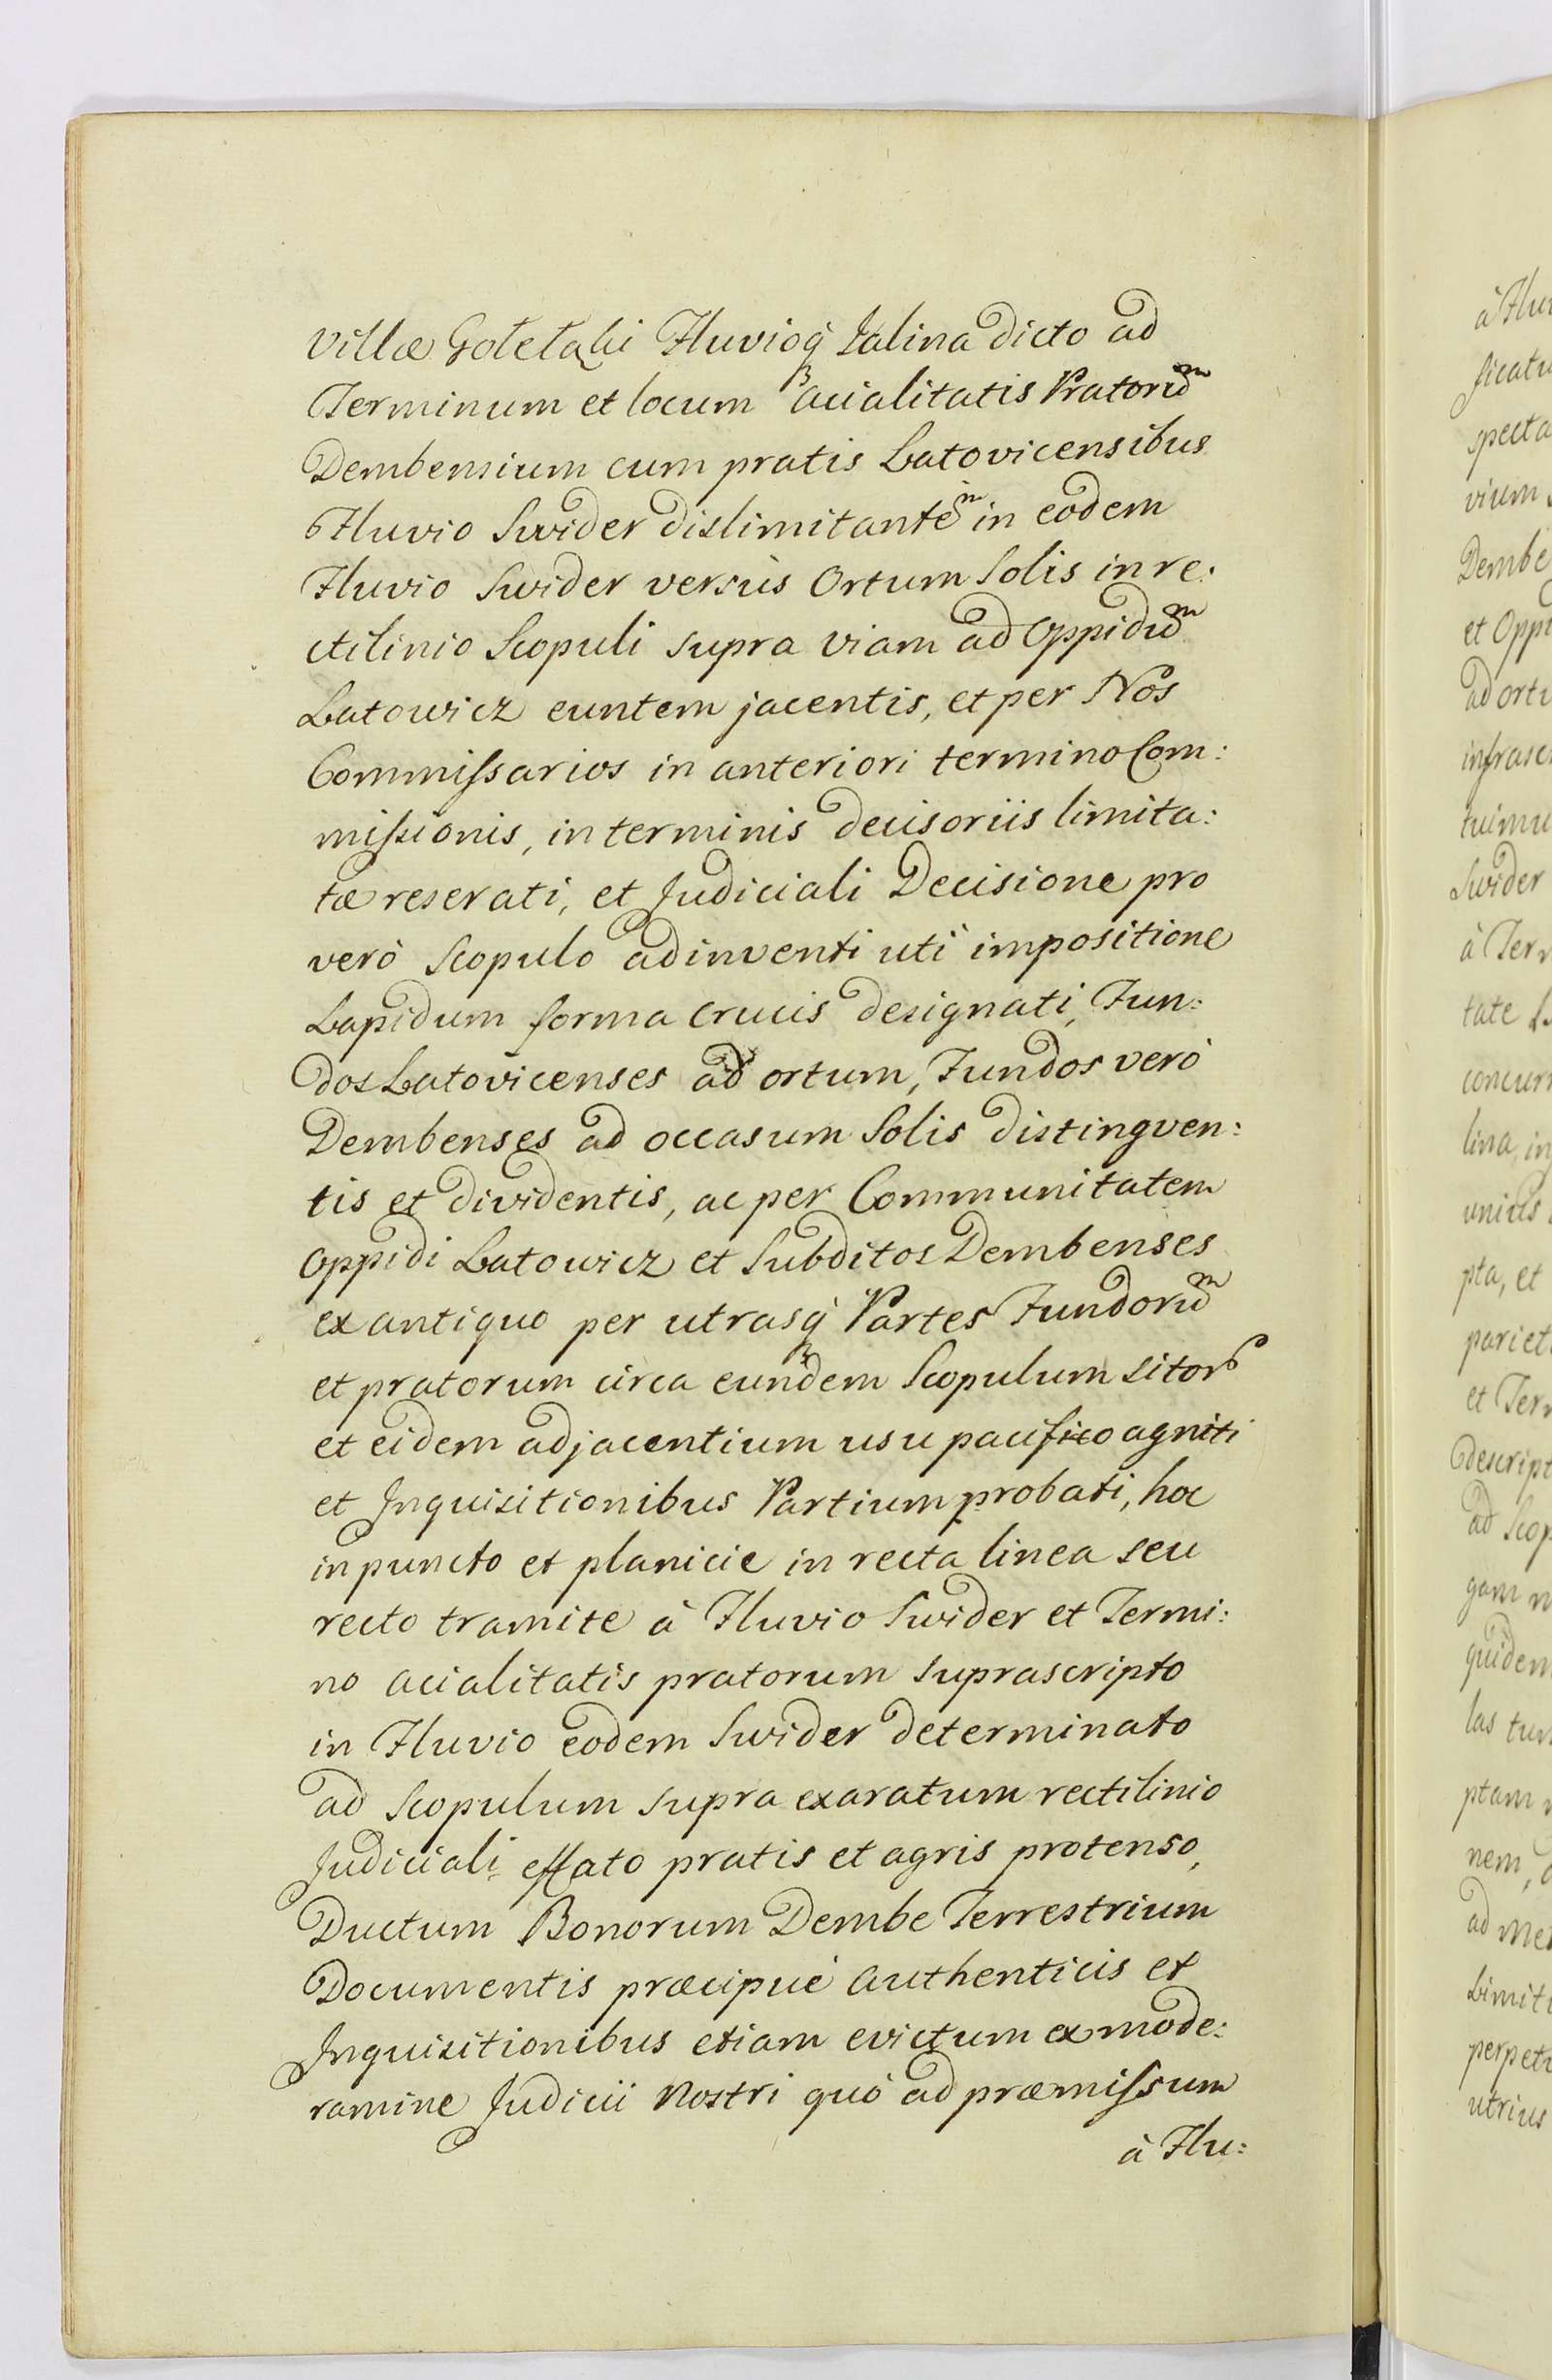 Villæ Goletahi Fluvioq́ꝫ Jalina dicto ad
Terminum et locum acialitatis Pratorūm
Dembensium cum pratis Latovicensibus
Fluvio Swider dislimitantēm in eodem
Fluvio Swider versùs Ortum Solis in re:
ctilinio Scopuli supra viam ad Oppidūm
Latowicz euntem jacentis, et per Nos
Commiſsarios in anteriori termino Com:
miſsionis, in terminis decisoriis limita:
tæ reserati, et Judiciali Decisione pro
verò Scopulo adinventi uti impositione
Lapidum forma Crucis designati, Fun:
dos Latovicenses ad ortum, Fundos verò
Dembenses ad occasum Solis distingven:
tis et dividentis, ac per Communitatem
Oppidi Latowicz et Subditos Dembenses
ex antiquo per utrasq́ꝫ Partes Fundorūm
et pratorum circa eundem Scopulum sitor
et eidem adjacentium usu pacifico agniti
et Inquisitionibus Partium probati, hoc
in puncto et planicie in recta linea seu
recto tramite à Fluvio Swider et Termi:
no acialitatis pratorum suprascripto
in Fluvio eodem Swider determinato
ad Scopulum supra exaratum rectilinio
Judiciali effato pratis et agris protenso,
Ductum Bonorum Dembe Terrestrium
Documentis præcipuè Authenticis et
Inquisitionibus etiam evictum ex mode:
ramine Judicii Nostri quò ad præmiſsum
à Flu:
à Flu
ficatu
specta
vium
Dembe
et Opp
ad ortu
infrasc
tuimu
Swider
à Ter
tate
concur
lina, in
pta, et
pariet
et Ter
descript
ad Scop
gam
quidem
las tu
ptam
nem,
ad me
Limit
perpet
utrius